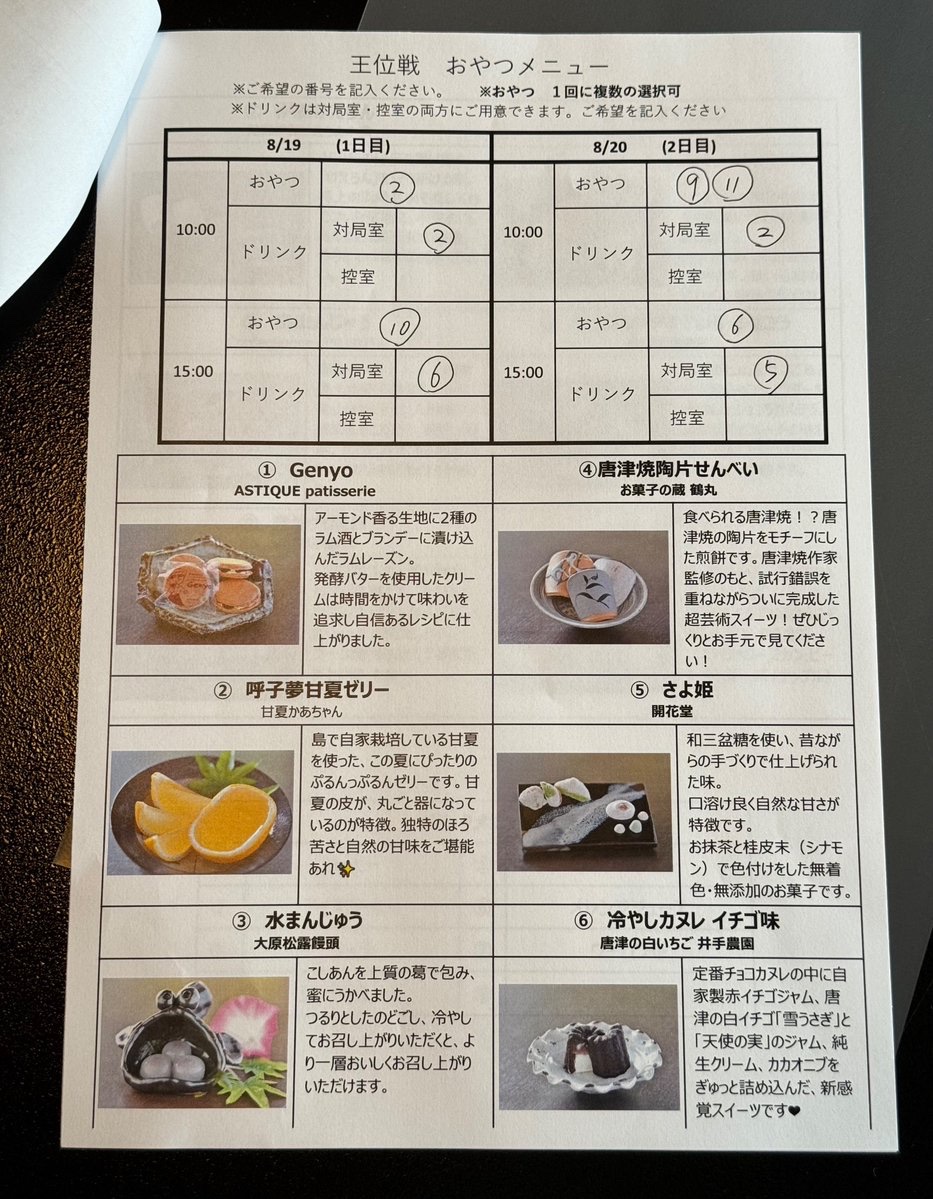 王位戦 おやつメニュー
※ご希望の番号を記入ください。 ※おやつ 1回に複数の選択可
※ドリンクは対局室・控室の両方にご用意できます。ご希望を記入ください
8/19 (1日目)
10:00
おやつ ②
ドリンク
対局室 ②
控室
15:00
おやつ ⑩
ドリンク
対局室 ⑥
控室
8/20 (2日目)
10:00
おやつ ⑨ ⑪
ドリンク
対局室 ②
控室
15:00
おやつ ⑥
ドリンク
対局室 ⑤
控室
① Genyo
ASTIQUE patisserie
アーモンド香る生地に2種の
ラム酒とブランデーに漬け込
んだラムレーズン。
発酵バターを使用したクリー
ムは時間をかけて味わいを
追求し自信あるレシピに仕
上がりました。
② 呼子夢甘夏ゼリー
甘夏かあちゃん
島で自家栽培している甘夏
を使った、この夏にぴったりの
ぷるんっぷるんゼリーです。甘
夏の皮が、丸ごと器になって
いるのが特徴。独特のほろ
苦さと自然の甘味をご堪能
あれ✨
③ 水まんじゅう
大原松露饅頭
こしあんを上質の葛で包み、
蜜にうかべました。
つるりとしたのどごし、冷やし
てお召し上がりいただくと、よ
り一層おいしくお召し上がり
いただけます。
④唐津焼陶片せんべい
お菓子の蔵 鶴丸
食べられる唐津焼！？唐
津焼の陶片をモチーフにし
た煎餅です。唐津焼作家
監修のもと、試行錯誤を
重ねながらついに完成した
超芸術スイーツ！ぜひじっ
くりとお手元で見てくださ
い！
⑤ さよ姫
開花堂
和三盆糖を使い、昔なが
らの手づくりで仕上げられ
た味。
口溶け良く自然な甘さが
特徴です。
お抹茶と桂皮末（シナモ
ン）で色付けをした無着
色・無添加のお菓子です。
⑥ 冷やしカヌレ イチゴ味
唐津の白いちご 井手農園
定番チョコカヌレの中に自
家製赤イチゴジャム、唐
津の白イチゴ「雪うさぎ」と
「天使の実」のジャム、純
生クリーム、カカオニブを
ぎゅっと詰め込んだ、新感
覚スイーツです♥